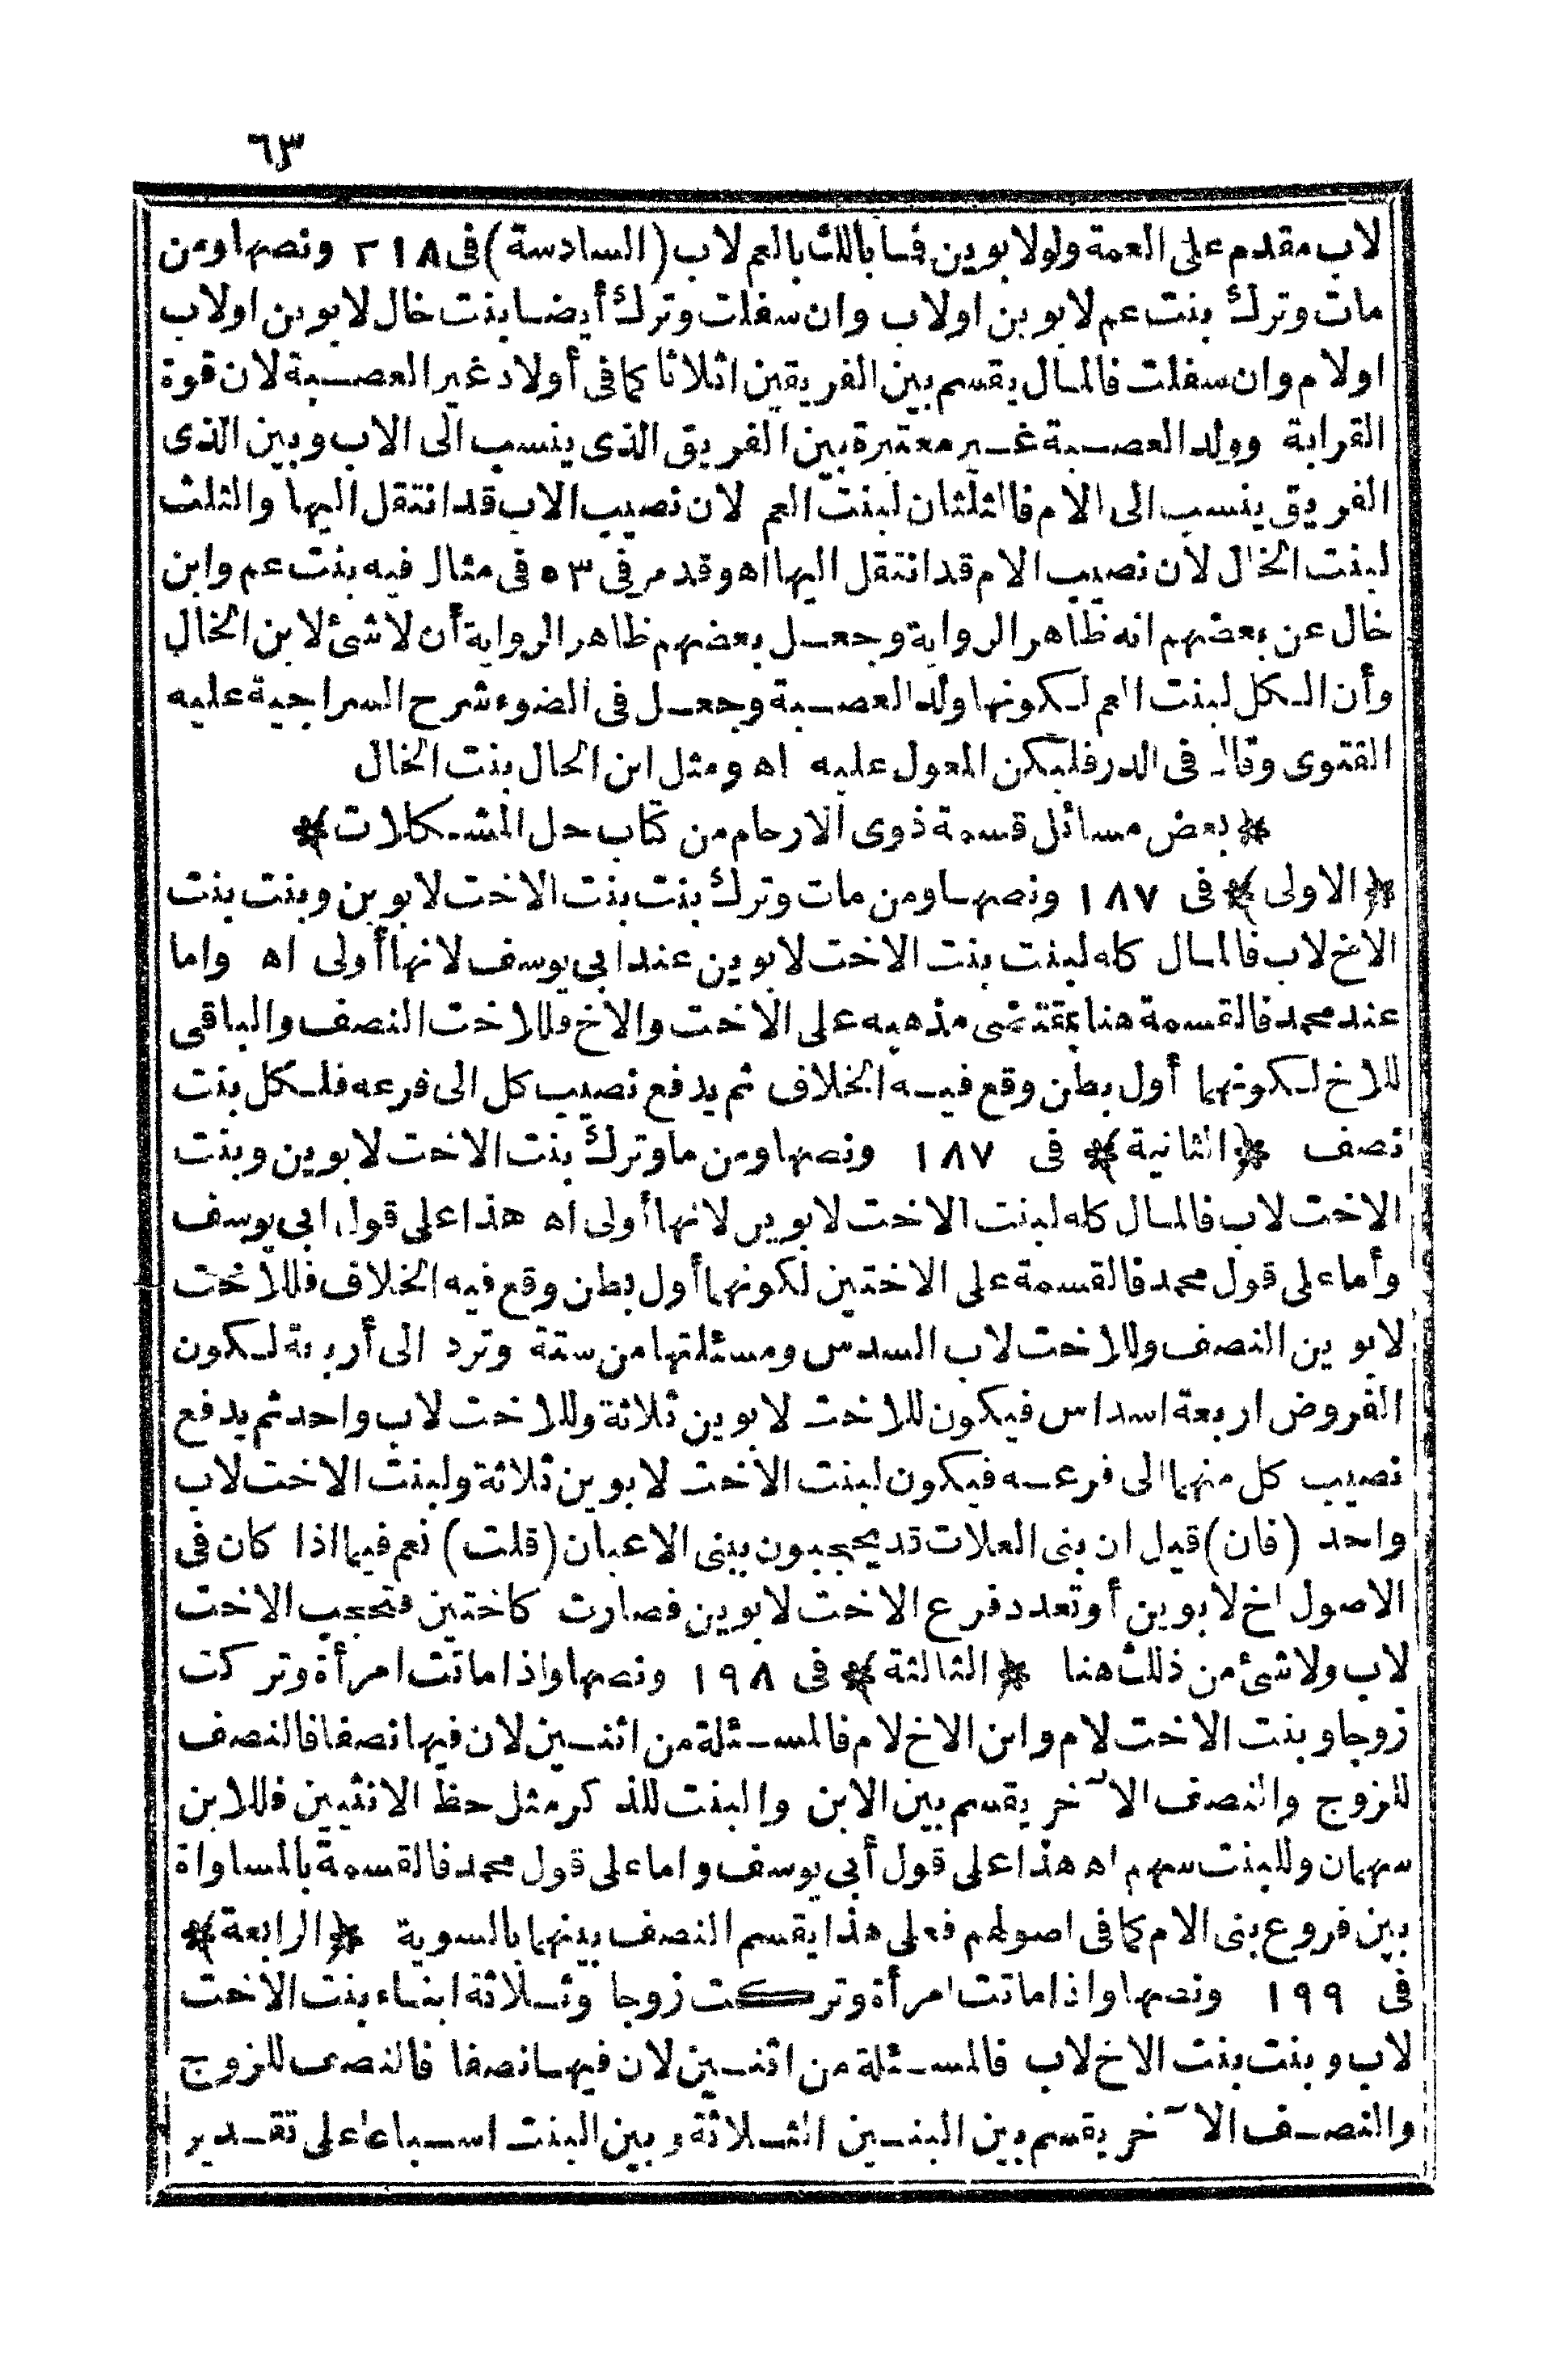 ٦٣
لاب مقدم على العمة ولو لابوين فما بالك بالعم لاب (السادسة) فى ٢١٨ ونصها ومن
مات وترك بنت عم لابوين اولاب وان سفلت وترك أيضا بنت خال لابوين اولاب
اولام وان سفلت فالمال يقسم بين الفريقين اثلاثا كما فى أولاد غير العصبة لان قوة
القرابة وولد العصبة غير معتبرة بين الفريق الذى ينسب الى الاب وبين الذى
الفريق ينسب الى الام فالثلثان لبنت العم لان نصيب الاب قد انتقل اليها والثلث
لبنت الخال لان نصيب الام قد انتقل اليها اه وقد مر فى ٥٣ فى مثال فيه بنت عم وابن
خال عن بعضهم انه ظاهر الرواية وجعل بعضهم ظاهر الرواية أن لاشئ لابن الخال
وأن الكل لبنت العم لكونها ولد العصبة وجعل فى الضوء شرح السراجية عليه
الفتوى وقال فى الدر فليكن المعول عليه اه ومثل ابن الخال بنت الخال
﴿بعض مسائل قسمة ذوى الارحام من كتاب حل المشكلات﴾
﴿الاولى﴾ فى ١٨٧ ونصها ومن مات وترك بنت بنت الاخت لابوين وبنت بنت
الاخ لاب فالمال كله لبنت بنت الاخت لابوين عند ابى يوسف لانها أولى اه واما
عند محمد فالقسمة هنا بمقتضى مذهبه على الاخت والاخ فللاخت النصف والباقى
للاخ لكونهما أول بطن وقع فيه الخلاف ثم يدفع نصيب كل الى فرعه فلكل بنت
نصف ﴿الثانية﴾ فى ١٨٧ ونصها ومن ما وترك بنت الاخت لابوين وبنت
الاخت لاب فالمال كله لبنت الاخت لابوين لانها أولى اه هذا على قول ابى يوسف
وأما على قول محمد فالقسمة على الاختين لكونهما أول بطن وقع فيه الخلاف فللاخت
لابوين النصف وللاخت لاب السدس ومسئلتها من ستة وترد الى أربعة لكون
الفروض اربعة اسداس فيكون للاخت لابوين ثلاثة وللاخت لاب واحد ثم يدفع
نصيب كل منهما الى فرعه فيكون لبنت الاخت لابوين ثلاثة ولبنت الاخت لاب
واحد (فان) قيل ان بنى العلات قد يحجبون ببنى الاعيان (قلت) نعم فيما اذا كان فى
الاصول اخ لابوين أو تعدد فرع الاخت لابوين فصارت كاختين فتحجب الاخت
لاب ولاشئ من ذلك هنا ﴿الثالثة﴾ فى ١٩٨ ونصها واذا ماتت امرأة وتركت
زوجا وبنت الاخت لام وابن الاخ لام فالمسئلة من اثنين لان فيها نصفا فالنصف
للزوج والنصف الآخر يقسم بين الابن والبنت للذكر مثل حظ الانثيين فللابن
سهمان وللبنت سهم اه هذا على قول أبى يوسف واما على قول محمد فالقسمة بالمساواة
بين فروع بنى الام كما فى اصولهم فعلى هذا يقسم النصف بينهما بالسوية ﴿الرابعة﴾
فى ١٩٩ ونصها واذا ماتت امرأة وتركت زوجا وثلاثة ابناء بنت الاخت
لاب وبنت بنت الاخ لاب فالمسئلة من اثنين لان فيها نصفا فالنصف للزوج
والنصف الآخر يقسم بين البنين الثلاثة وبين البنت اسباعا على تقدير